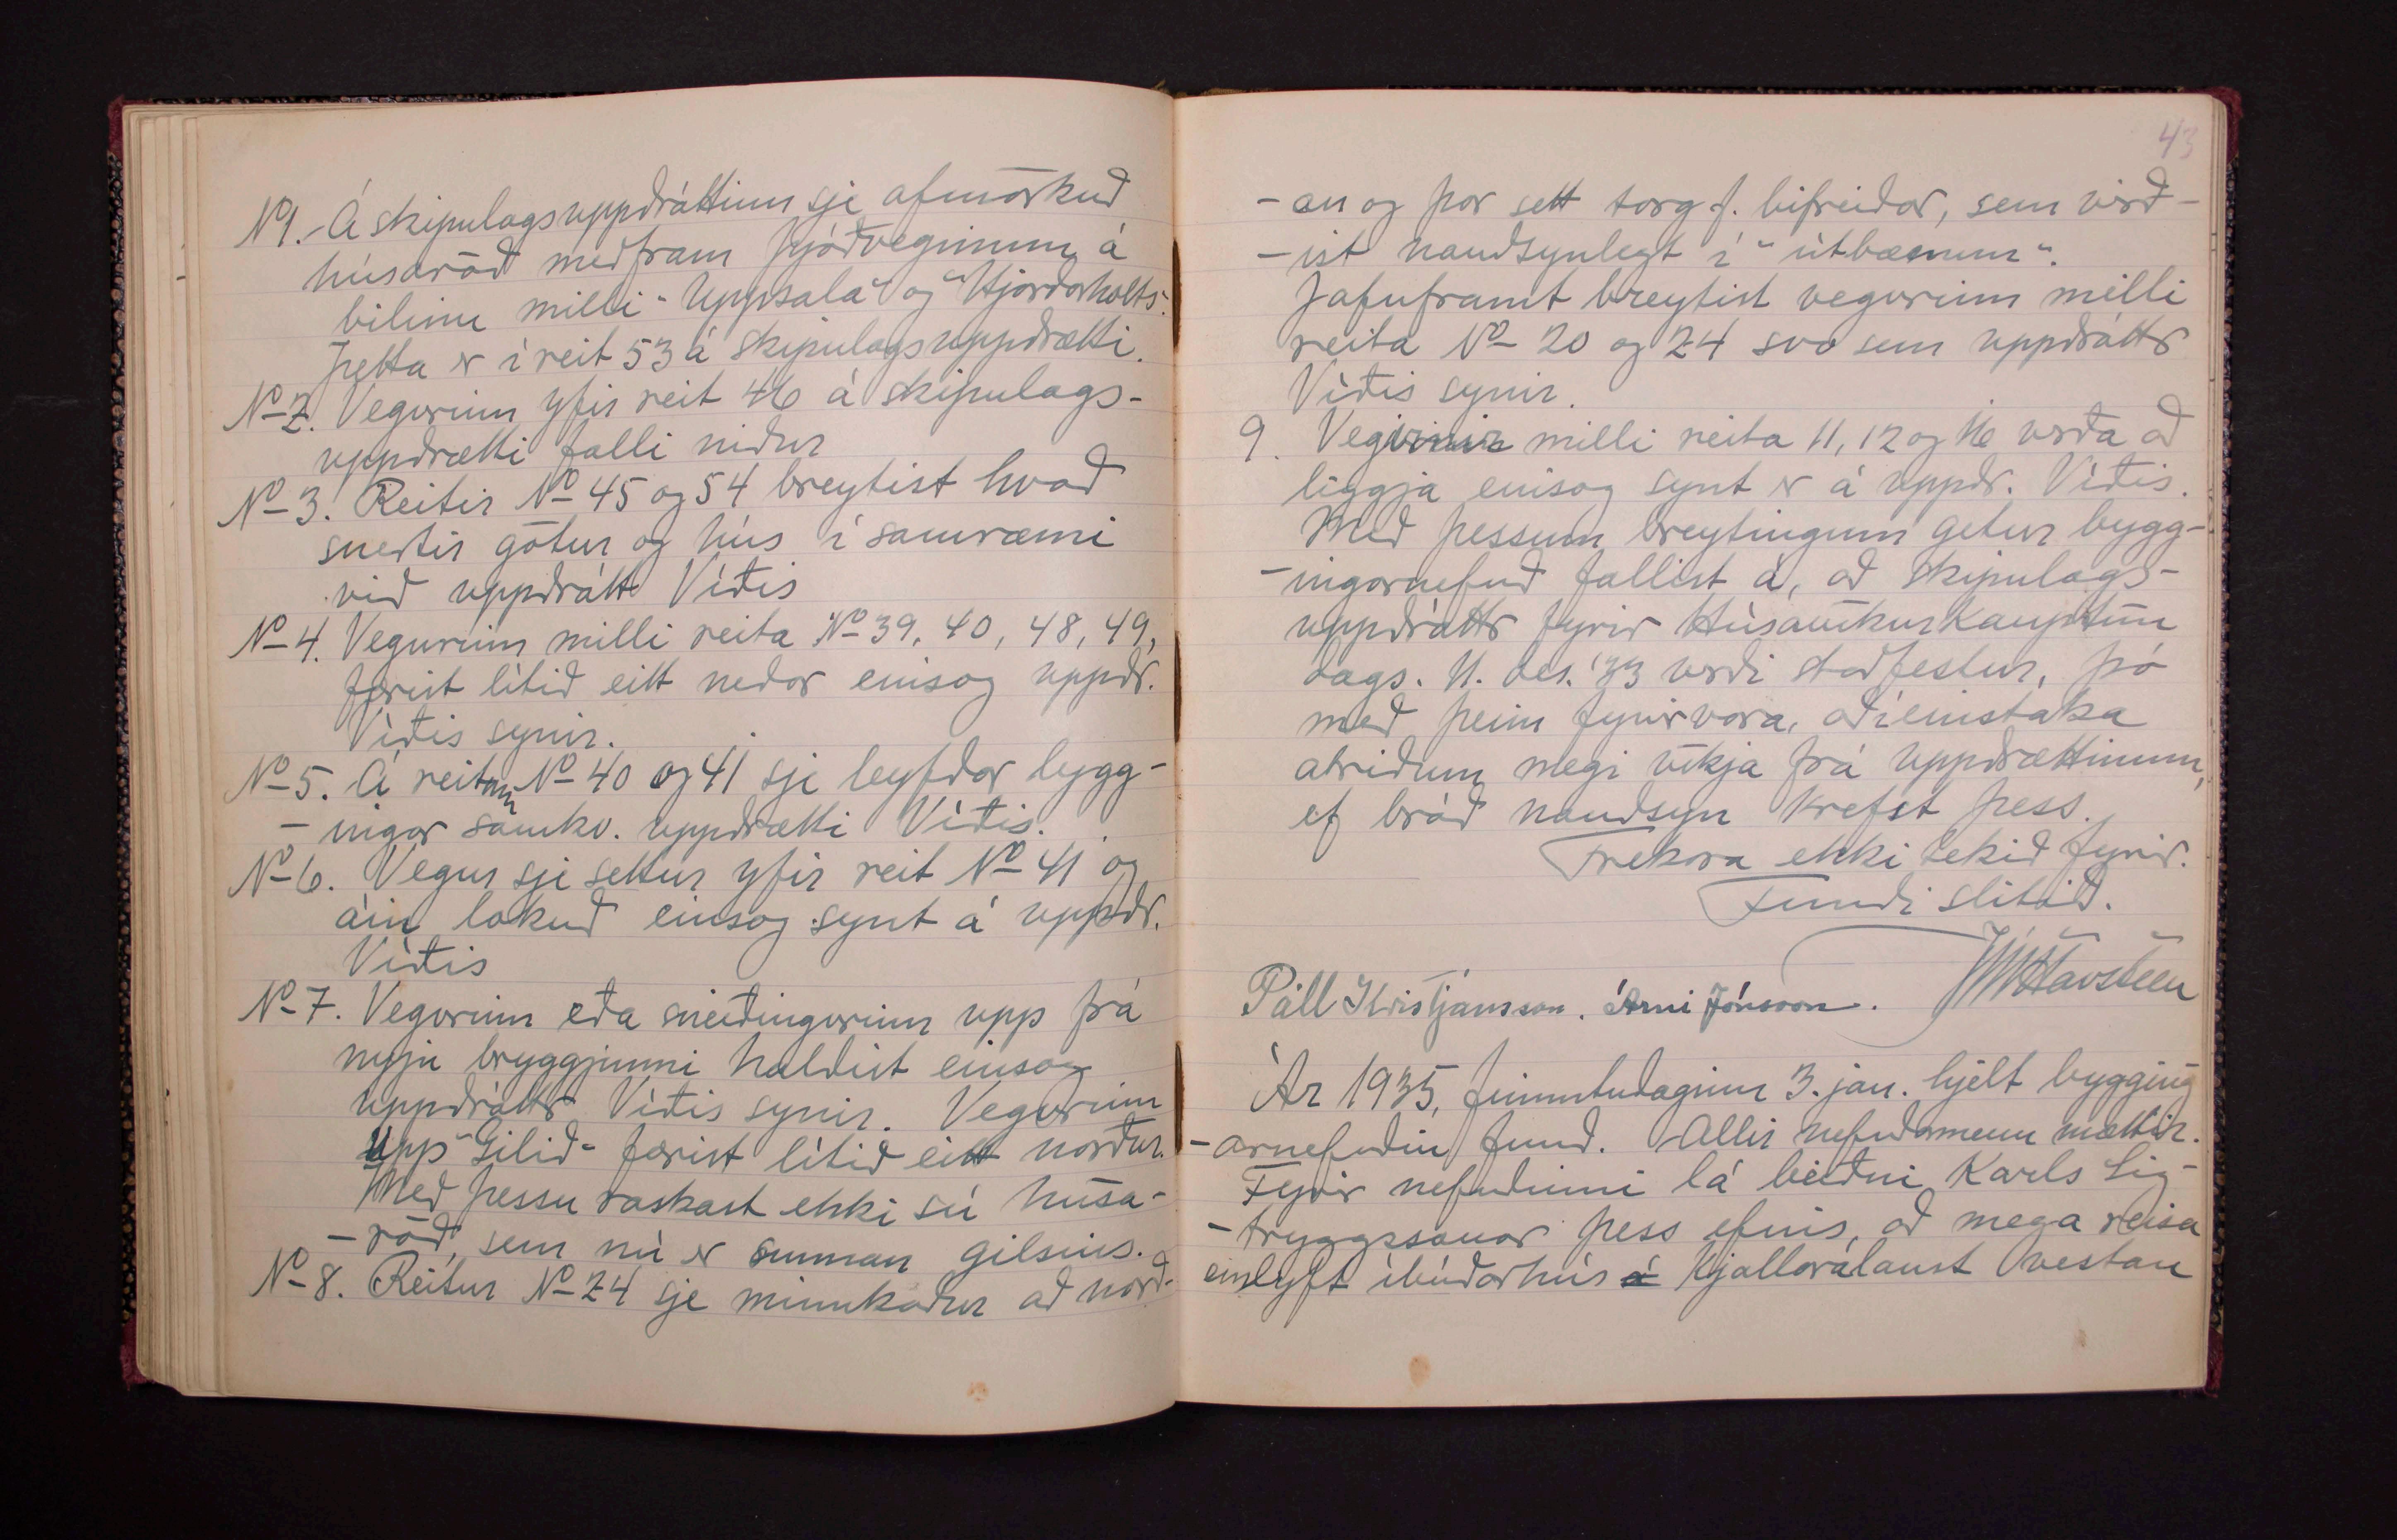 No 1. Á skipulagsuppdráttinn sje afmörkuð
húsaröð meðfram þjóðveginum á
bilinu milli "Uppsala" og "Hjarðarholts".
Þetta er í reit 53 á skipulagsuppdrætti.
No 2. Vegurinn yfir reit 46 á skipulags-
uppdrætti falli niður
No 3. Reitir No 45 og 54 breytist hvað
snertir götur og hús í samræmi
við uppdrátt Víðis
No 4. Vegurinn milli reita No 39, 40, 48, 49,
færist lítið eitt neðar einsog uppdr.
Víðis sýnir.
No 5. Á reitum No 40 og 41 sje leyfðar bygg-
- ingar samkv. uppdrætti Víðis.
No 6. Vegur sje settur yfir reit No 41 og
áin lokuð einsog sýnt á uppdr.
Víðis
No 7. Vegurinn eða sneiðingurinn upp frá
nýju bryggjunni haldist einsog
uppdráttr Víðis sýnir. Vegurinn
upp "Gilið" færist lítið eitt norður.
Með þessu raskast ekki sú húsa-
- röð, sem nú er sunnan gilsins.
No 8. Reitur No 24 sje minnkaður að norð-
43
- an og þar sett torg f. bifreiðar, sem virð-
- ist nauðsynlegt í "útbænum".
Jafnframt breytist vegurinn milli
reita No 20 og 24 svo sem uppdráttr
Víðis sýnir.
9. Vegirnir milli reita 11, 12 og 16 verða að
liggja einsog sýnt er á uppdr. Víðis.
Með þessum breytingum getur bygg-
- ingarnefnd fallist á, að skipulags-
uppdráttr fyrir Húsavíkurkauptún
dags. 11. des. '33 verði staðfestur, þó
með þeim fyrirvara, að í einstaka
atriðum megi víkja frá uppdrættinum,
ef bráð nauðsyn krefst þess.
Frekara ekki tekið fyrir.
Fundi slitið.
JVHavsteen
Páll Kristjánsson. Árni Jónsson.
Ár 1935, fimmtudaginn 3. jan. hjelt bygging
- arnefndin fund. Allir nefndarmenn mættir.
Fyrir nefndinni lá beiðni Karls Sig-
- tryggssonar þess efnis, að mega reisa
einlyft íbúðarhús á kjallaralaust vestan